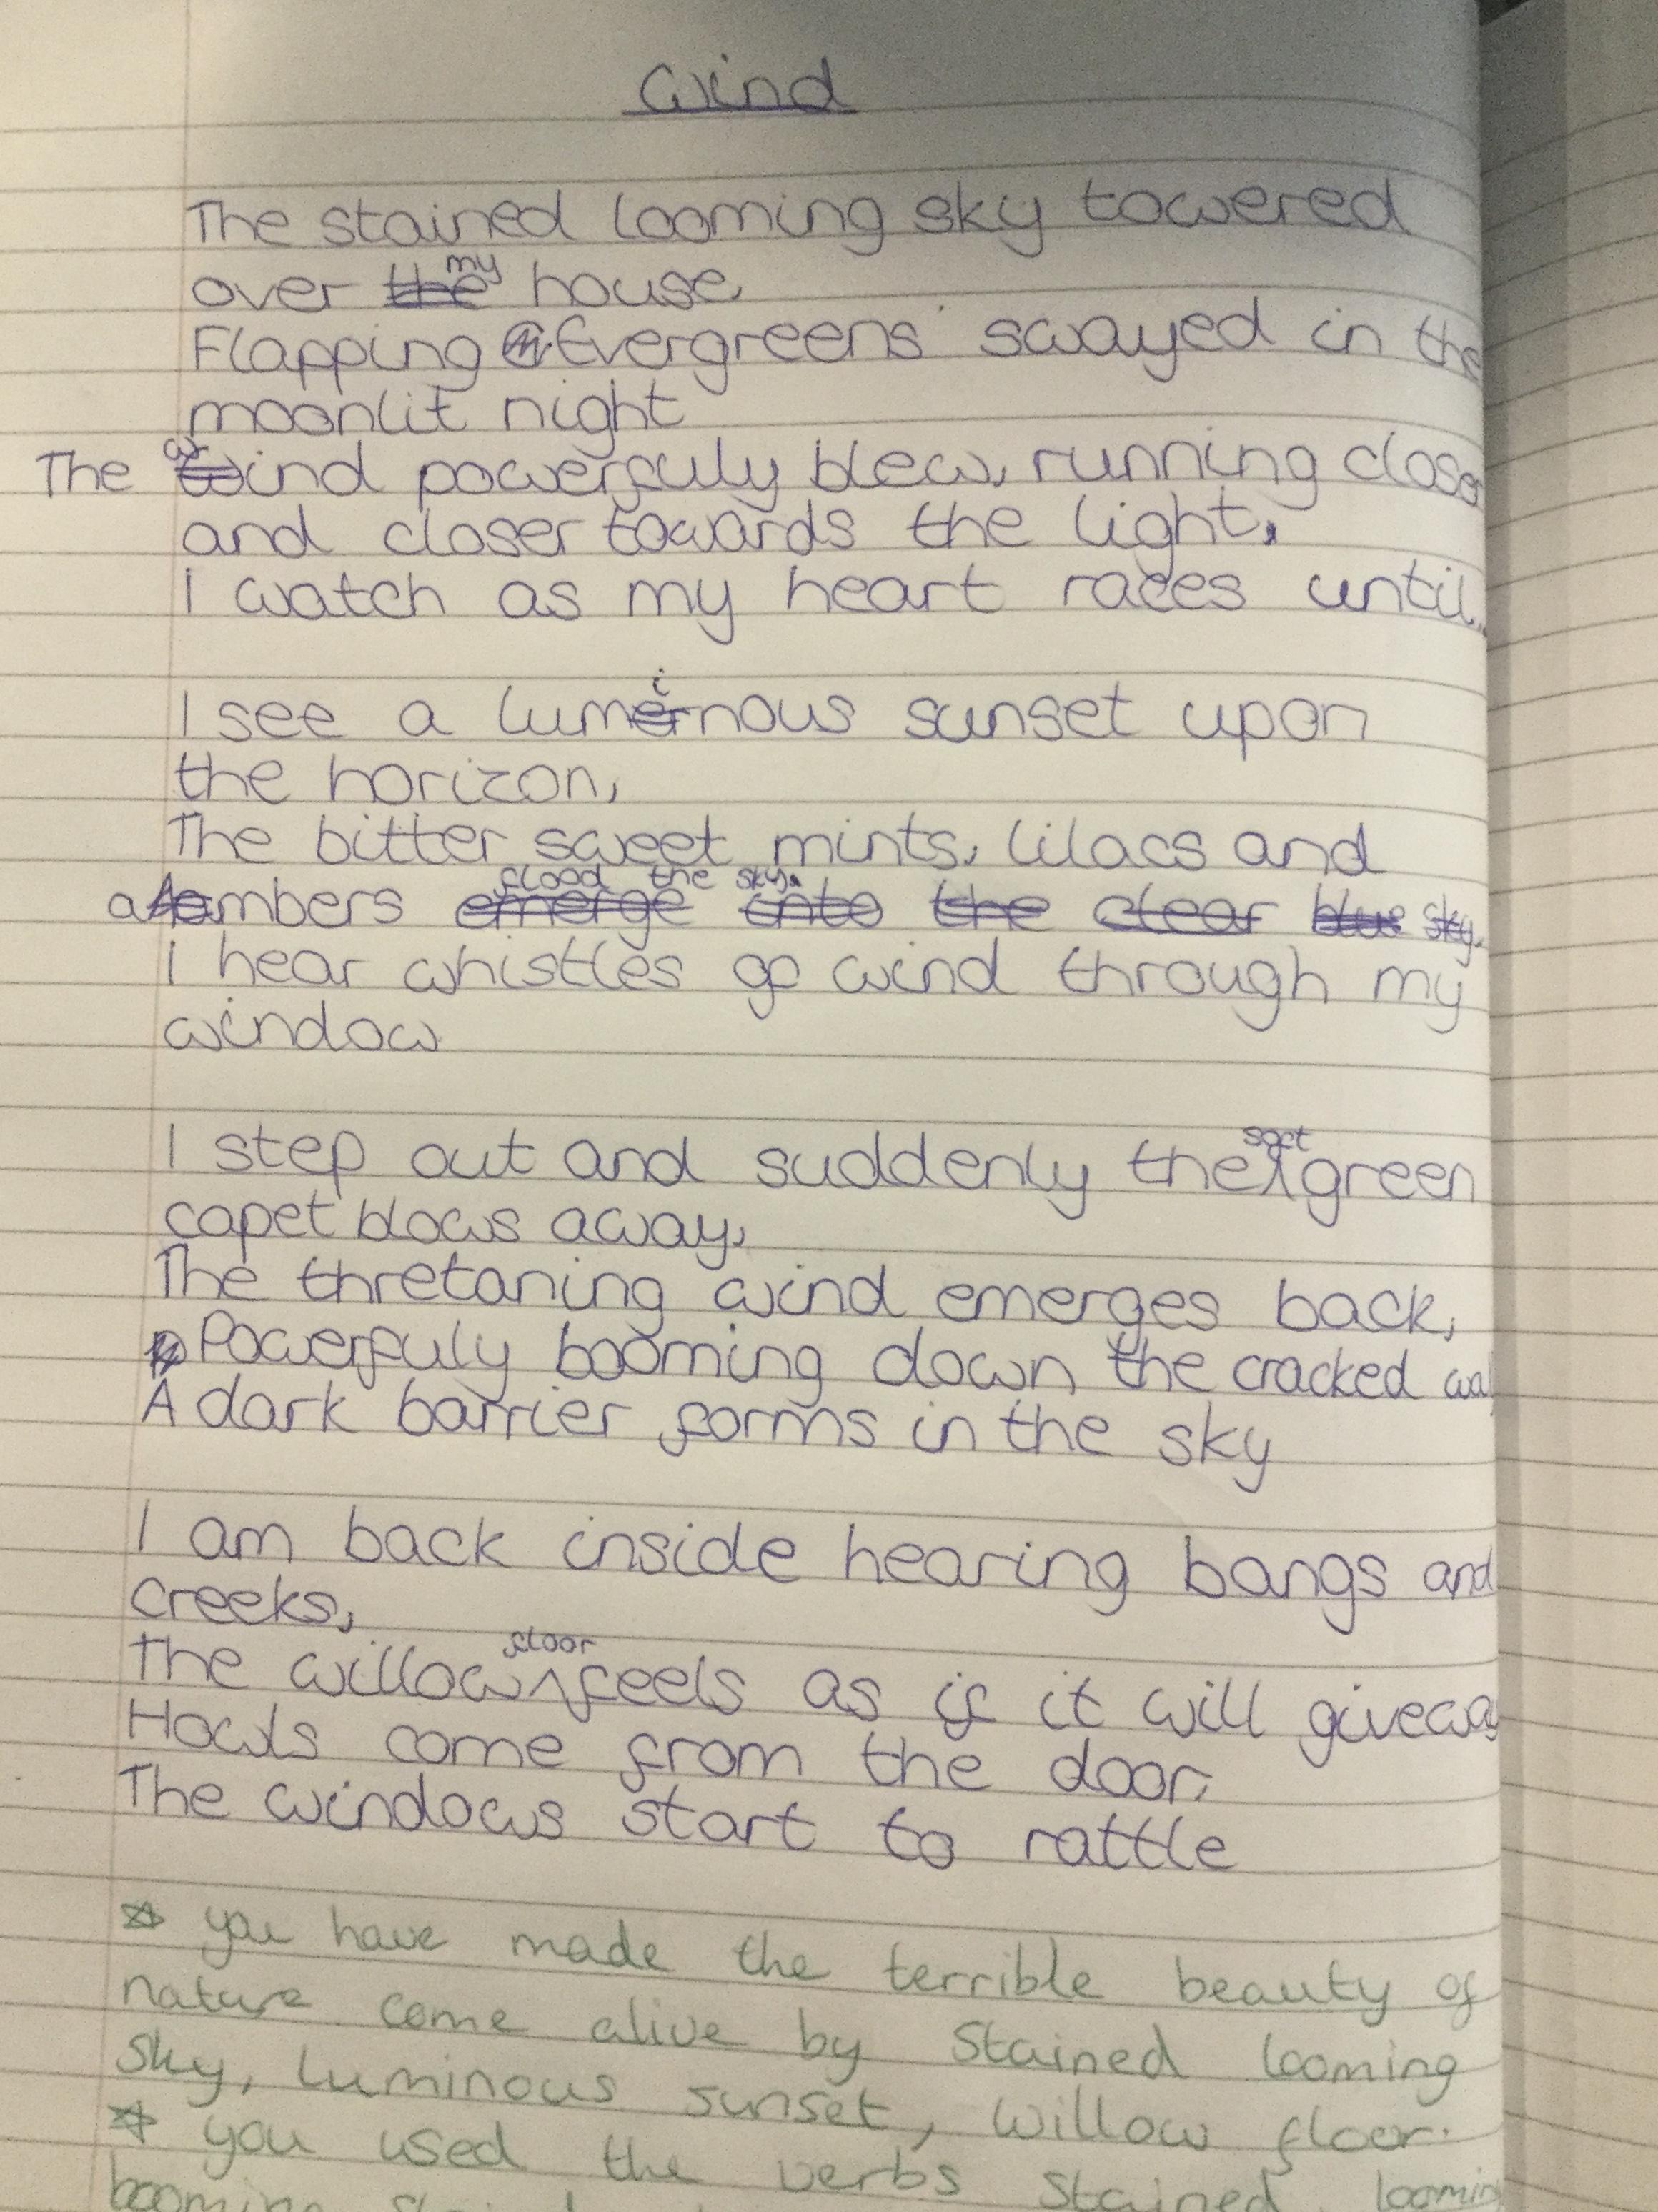 Wind
The stained looming sky towered
over my house
Flapping Evergreens swayed in the
moonlit night
The wind powerfuly blew, running closer
and closer towards the light,
I watch as my heart races until..
I see a luminous sunset upon
the horizon,
The bitter sweet mints, lilacs and
ambers flood the sky.
I hear whistles of wind through my
window
I step out and suddenly the soft green
capet blows away,
The thretaning wind emerges back,
Powerfuly booming down the cracked
A dark barrier forms in the sky
I am back inside hearing bangs and
creeks,
The willow floor feels as if it will giveway
Howls come from the door,
The windows start to rattle
☆ you have made the terrible beauty of
nature come alive by Stained looming
sky, luminous sunset, willow floor.
☆ you used the verbs stained, looming
booming